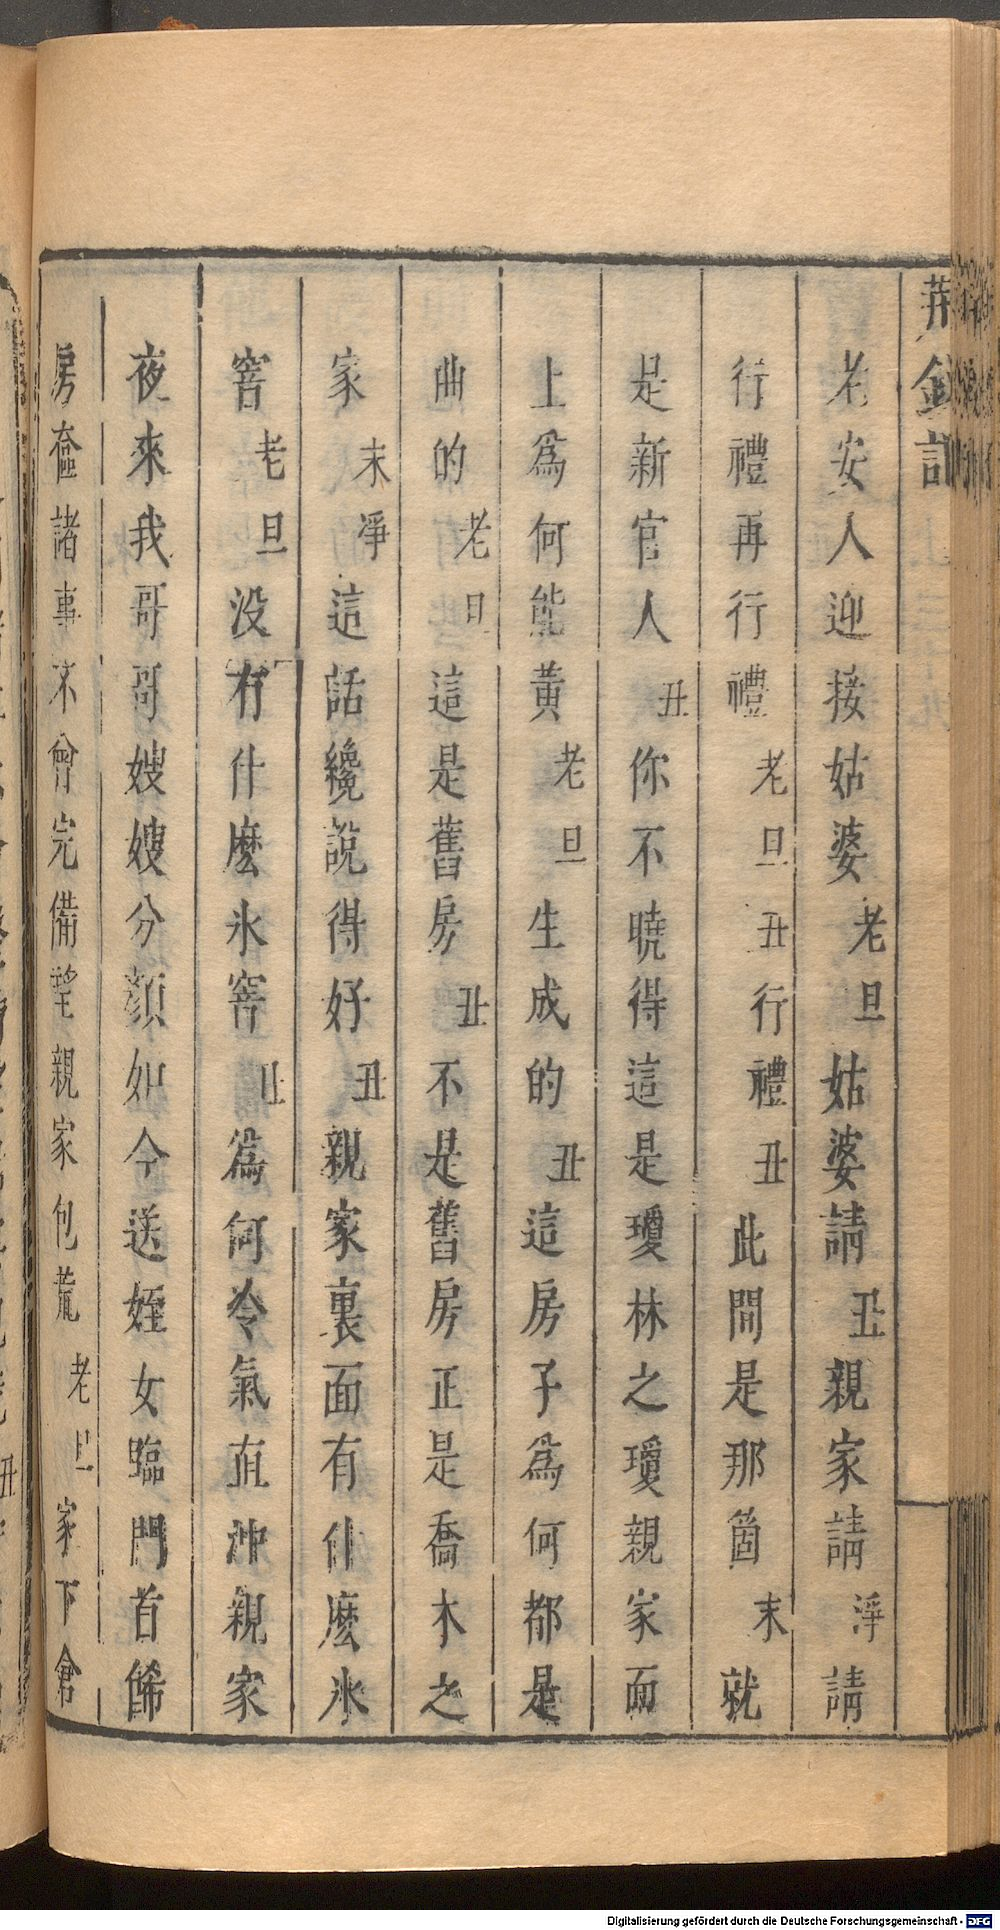 荆釵記
老安人迎接姑婆老旦姑婆請丑親家請淨請
行禮再行禮老旦丑行禮丑此間是那箇末就
是新官人丑你不曉得這是瓊林之瓊親家面
上爲何能黃老旦生成的丑這房子爲何都是
曲的老旦這是舊房丑不是舊房正是喬木之
家末淨這話纔說得好丑親家裏面有什麼氷
窖老旦没有什麼氷窖丑爲何冷氣直冲親家
夜來我哥哥嫂嫂分顔如今送姪女臨門首餙
房奩諸事不曾完備望親家包荒老旦家下倉
Digitalisierung gefördert durch die Deutsche Forschungsgemeinschaft - DFG